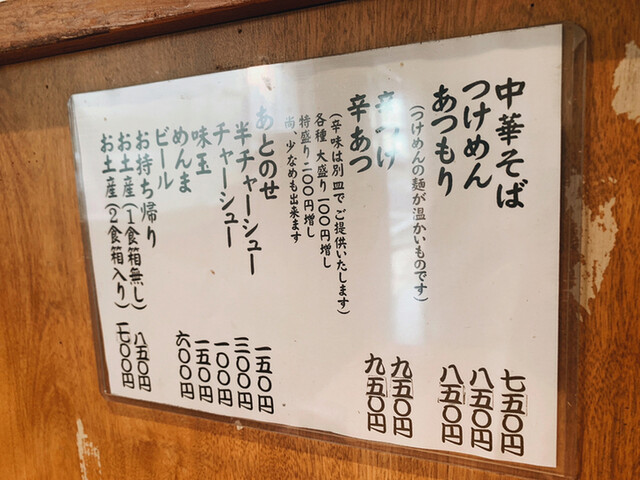 中華そば 七五〇円
つけめん 八五〇円
あつもり 八五〇円
(つけめんの麺が温かいものです)
辛つけ 九五〇円
辛あつ 九五〇円
(辛味は別皿でご提供いたします)
各種 大盛り 一〇〇円増し
特盛り二〇〇円増し
尚、少なめも出来ます
あとのせ
半チャーシュー 一五〇円
チャーシュー 三〇〇円
味玉 一〇〇円
めんま 一五〇円
ビール 六〇〇円
お持ち帰り
お土産(1食箱無し) 八五〇円
お土産(2食箱入り) 一七〇〇円